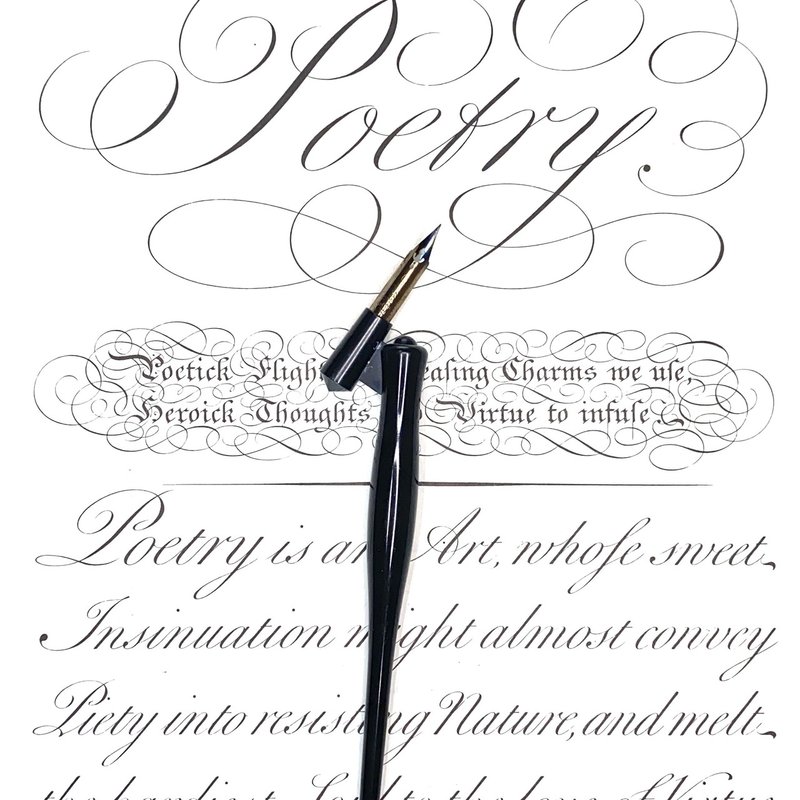 Poetry.
Poetick Charms we uſe,
Heroick Thoughts Virtue to infuſe.
Poetry is an Art, whoſe sweet
Insinuation might almost convey
Piety into resisting Nature, and melt
the to the of Virtue